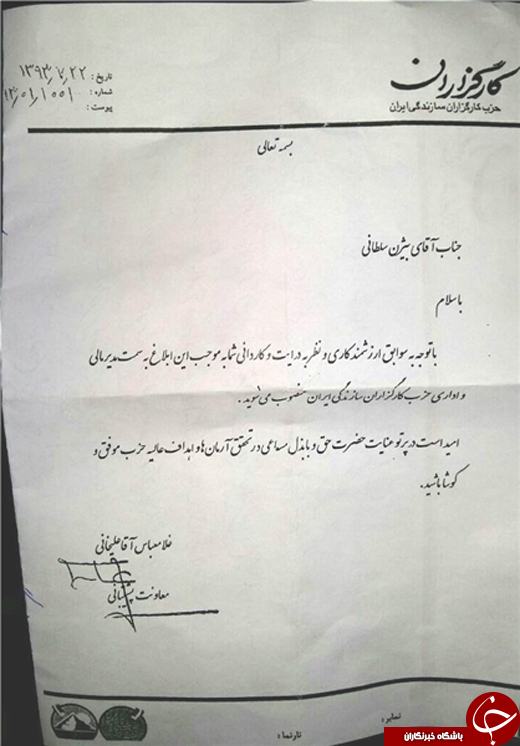 کارگزاران
حزب کارگزاران سازندگی ایران
تاریخ : ۱۳۹۳/۷/۲۲
شماره :
پیوست :
بسمه تعالی
جناب آقای بیژن سلطانی
با سلام
با توجه به سوابق ارزشمند کاری و نظر به درایت و کاردانی شما به موجب این ابلاغ به سمت مدیر مالی
و اداری حزب کارگزاران سازندگی ایران منصوب می شوید .
امید است در پرتو عنایت حضرت حق و با بذل مساعی در تحقق آرمان ها و اهداف عالیه حزب موفق و
کوشا باشید .
غلامعباس آقاعلیخانی
معاونت پشتیبانی
نمابر :
تارنما :
باشگاه خبرنگاران